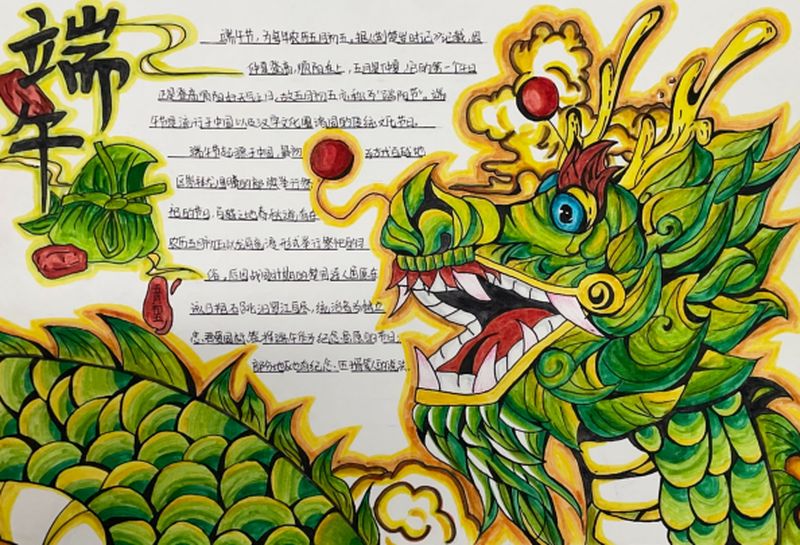 端午
端午节，为每年农历五月初五。据《荆楚岁时记》记载，因
仲夏登高，顺阳在上，五月是仲夏，它的第一个午日
正是登高顺阳好天气之日，故五月初五亦称为“端阳节”。端
午节是流行于中国以及汉字文化圈诸国的传统文化节日。
端午节起源于中国，最初 古代百越地
区崇拜龙图腾的部族举行祭
祖的节日，百越之地春秋
农历五月初五以龙舟 形式举行祭祀的习
俗。后因战国时期的楚国诗人屈原在
该日抱石跳汨罗江自尽，统治者为树立
忠 君爱国 端午作为纪念屈原的节日。
部分地区也有纪念 的说法